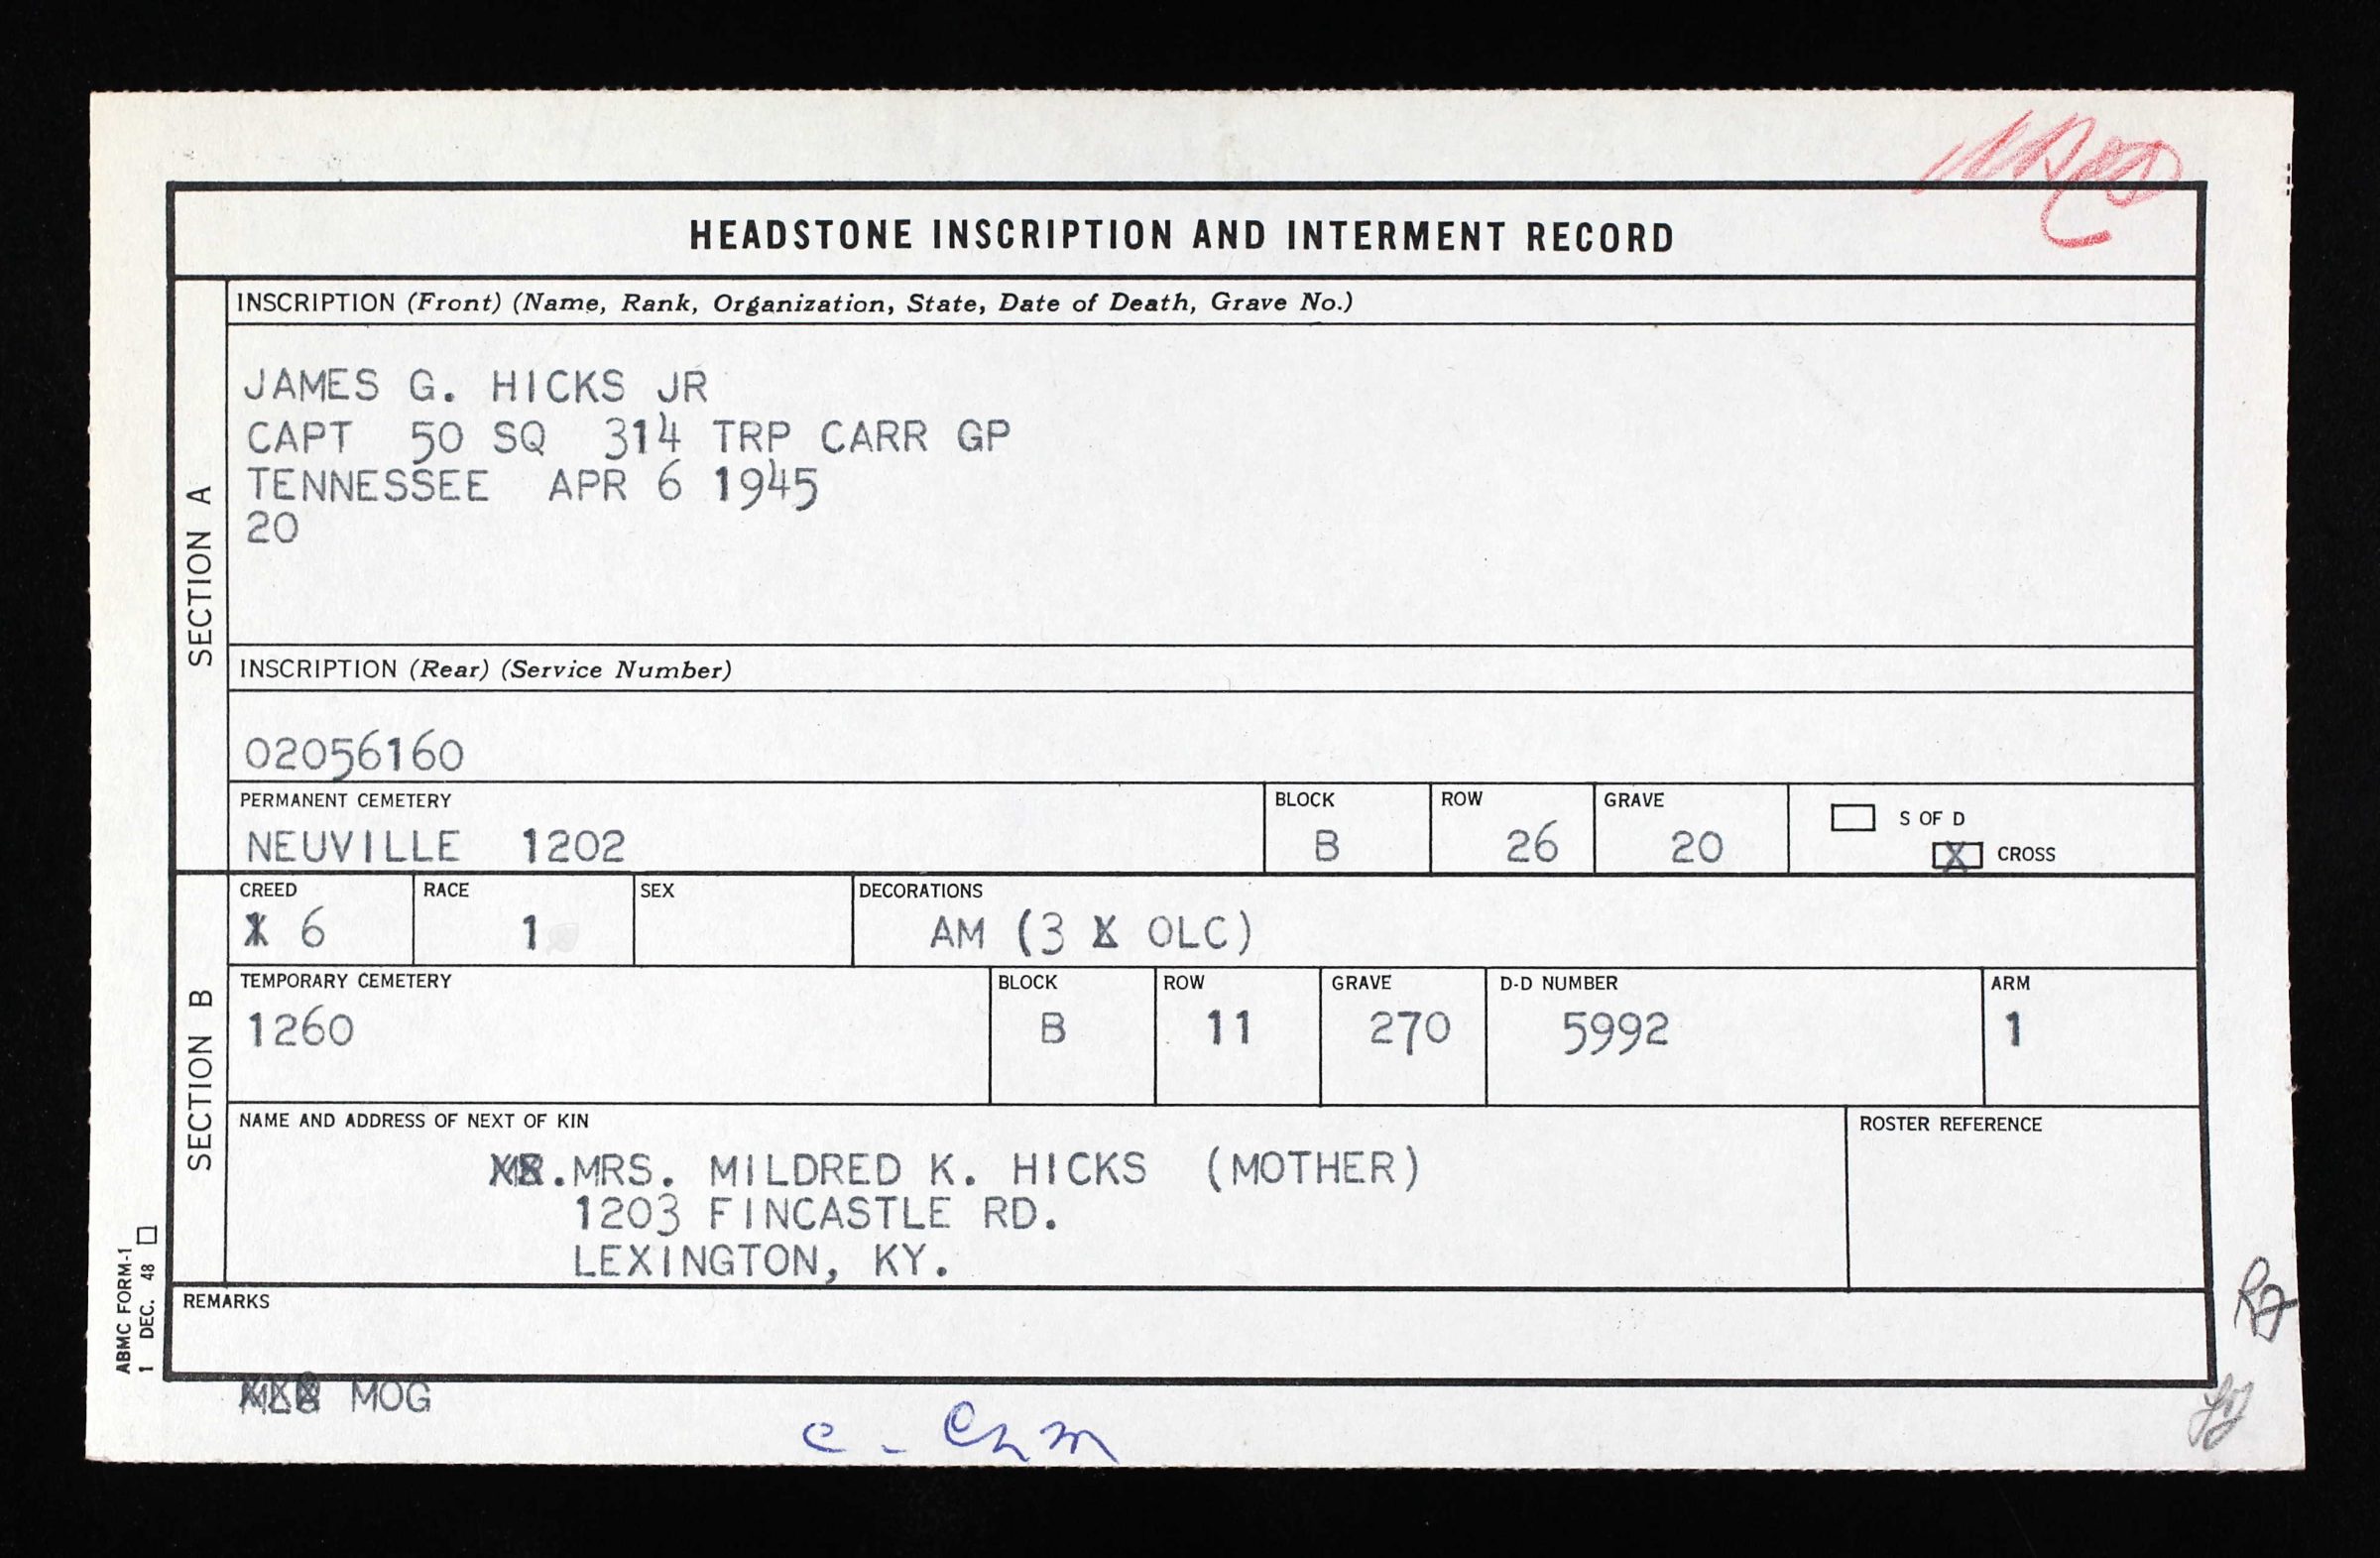 HEADSTONE INSCRIPTION AND INTERMENT RECORD
SECTION A
INSCRIPTION (Front) (Name, Rank, Organization, State, Date of Death, Grave No.)
JAMES G. HICKS JR
CAPT 50 SQ 314 TRP CARR GP
TENNESSEE APR 6 1945
20
INSCRIPTION (Rear) (Service Number)
02056160
PERMANENT CEMETERY BLOCK ROW GRAVE
NEUVILLE 1202 B 26 20
S OF D
X CROSS
SECTION B
CREED RACE SEX DECORATIONS
6 1 AM (3 OLC)
TEMPORARY CEMETERY BLOCK ROW GRAVE D-D NUMBER ARM
1260 B 11 270 5992 1
NAME AND ADDRESS OF NEXT OF KIN ROSTER REFERENCE
MRS. MILDRED K. HICKS (MOTHER)
1203 FINCASTLE RD.
LEXINGTON, KY.
REMARKS
ABMC FORM-1
1 DEC. 48
MOG